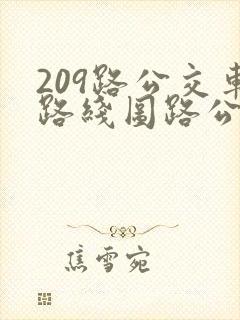 209路公交车
路线图路公
焦雪宛